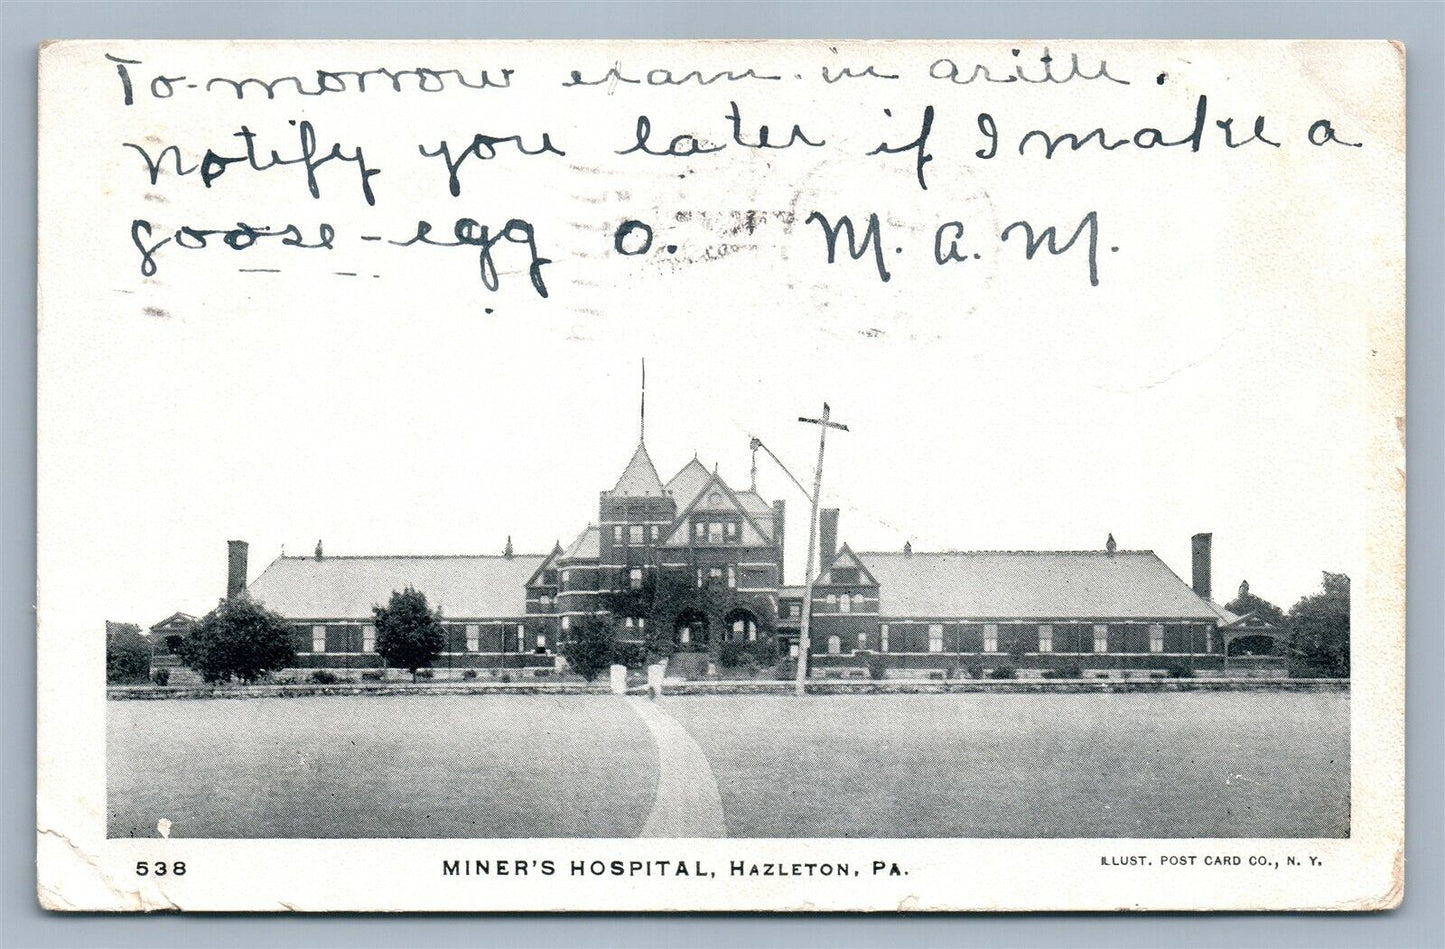 To-morrow exam. in arith.
Notify you later if I make a
goose-egg o. M. A. M.
538
MINER'S HOSPITAL, HAZLETON, PA.
ILLUST. POST CARD CO., N. Y.